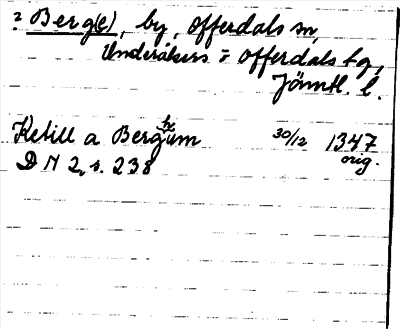 ? Berg(e), by, Offerdals sn,
Undersåkers o Offerdals tg,
Jämtl. l.
Ketill a Berghum 30/12 1347
D N 2, s. 238 orig.